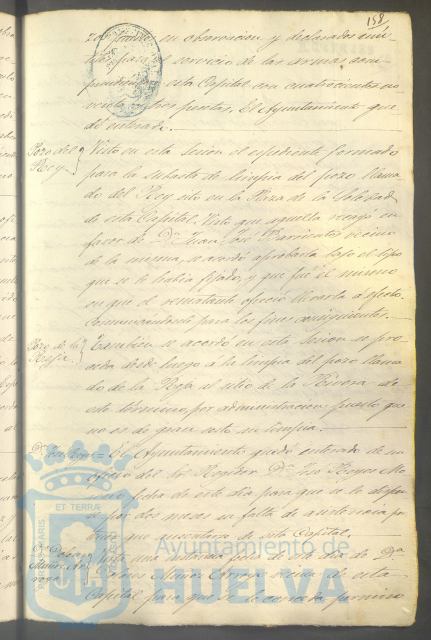 158
en observacion y declarados
para el servicio de las armas,
esta Capital con cuatrocientas no
venta y tres pesetas. El Ayuntamiento que
dó enterado.
Pozo del Rey
Visto en esta sesion el expediente formado
para la subasta de limpia del pozo llama
do del Rey sito en la Plaza de la Soledad
de esta Capital. Visto que aquella recayó en
favor de Dn. Juan José Barrientos vecino
de la misma, se acordó aprobarla bajo el tipo
que se le habia fijado, y que fué el mismo
en que el rematante ofreció llevarla á efecto.
Comunicandole para los fines consiguientes.
Pozo de la
Tambien se acordó en esta sesion se pro
ceda desde luego á la limpia del pozo llama
do de la al sitio de la Rivera de
este término, por administracion puesto que
no es de gran costo su limpia.
El Ayuntamiento quedó enterado de un
oficio del Regidor Dn. José Reyes
fecha de este dia para que se le dispen
se por dos meses su falta de asistencia por
tener que ausentarse de esta Capital.
Vista una de Da.
vecina de esta
Capital para que se le conceda permiso
ET TERRAE
Ayuntamiento de
HUELVA